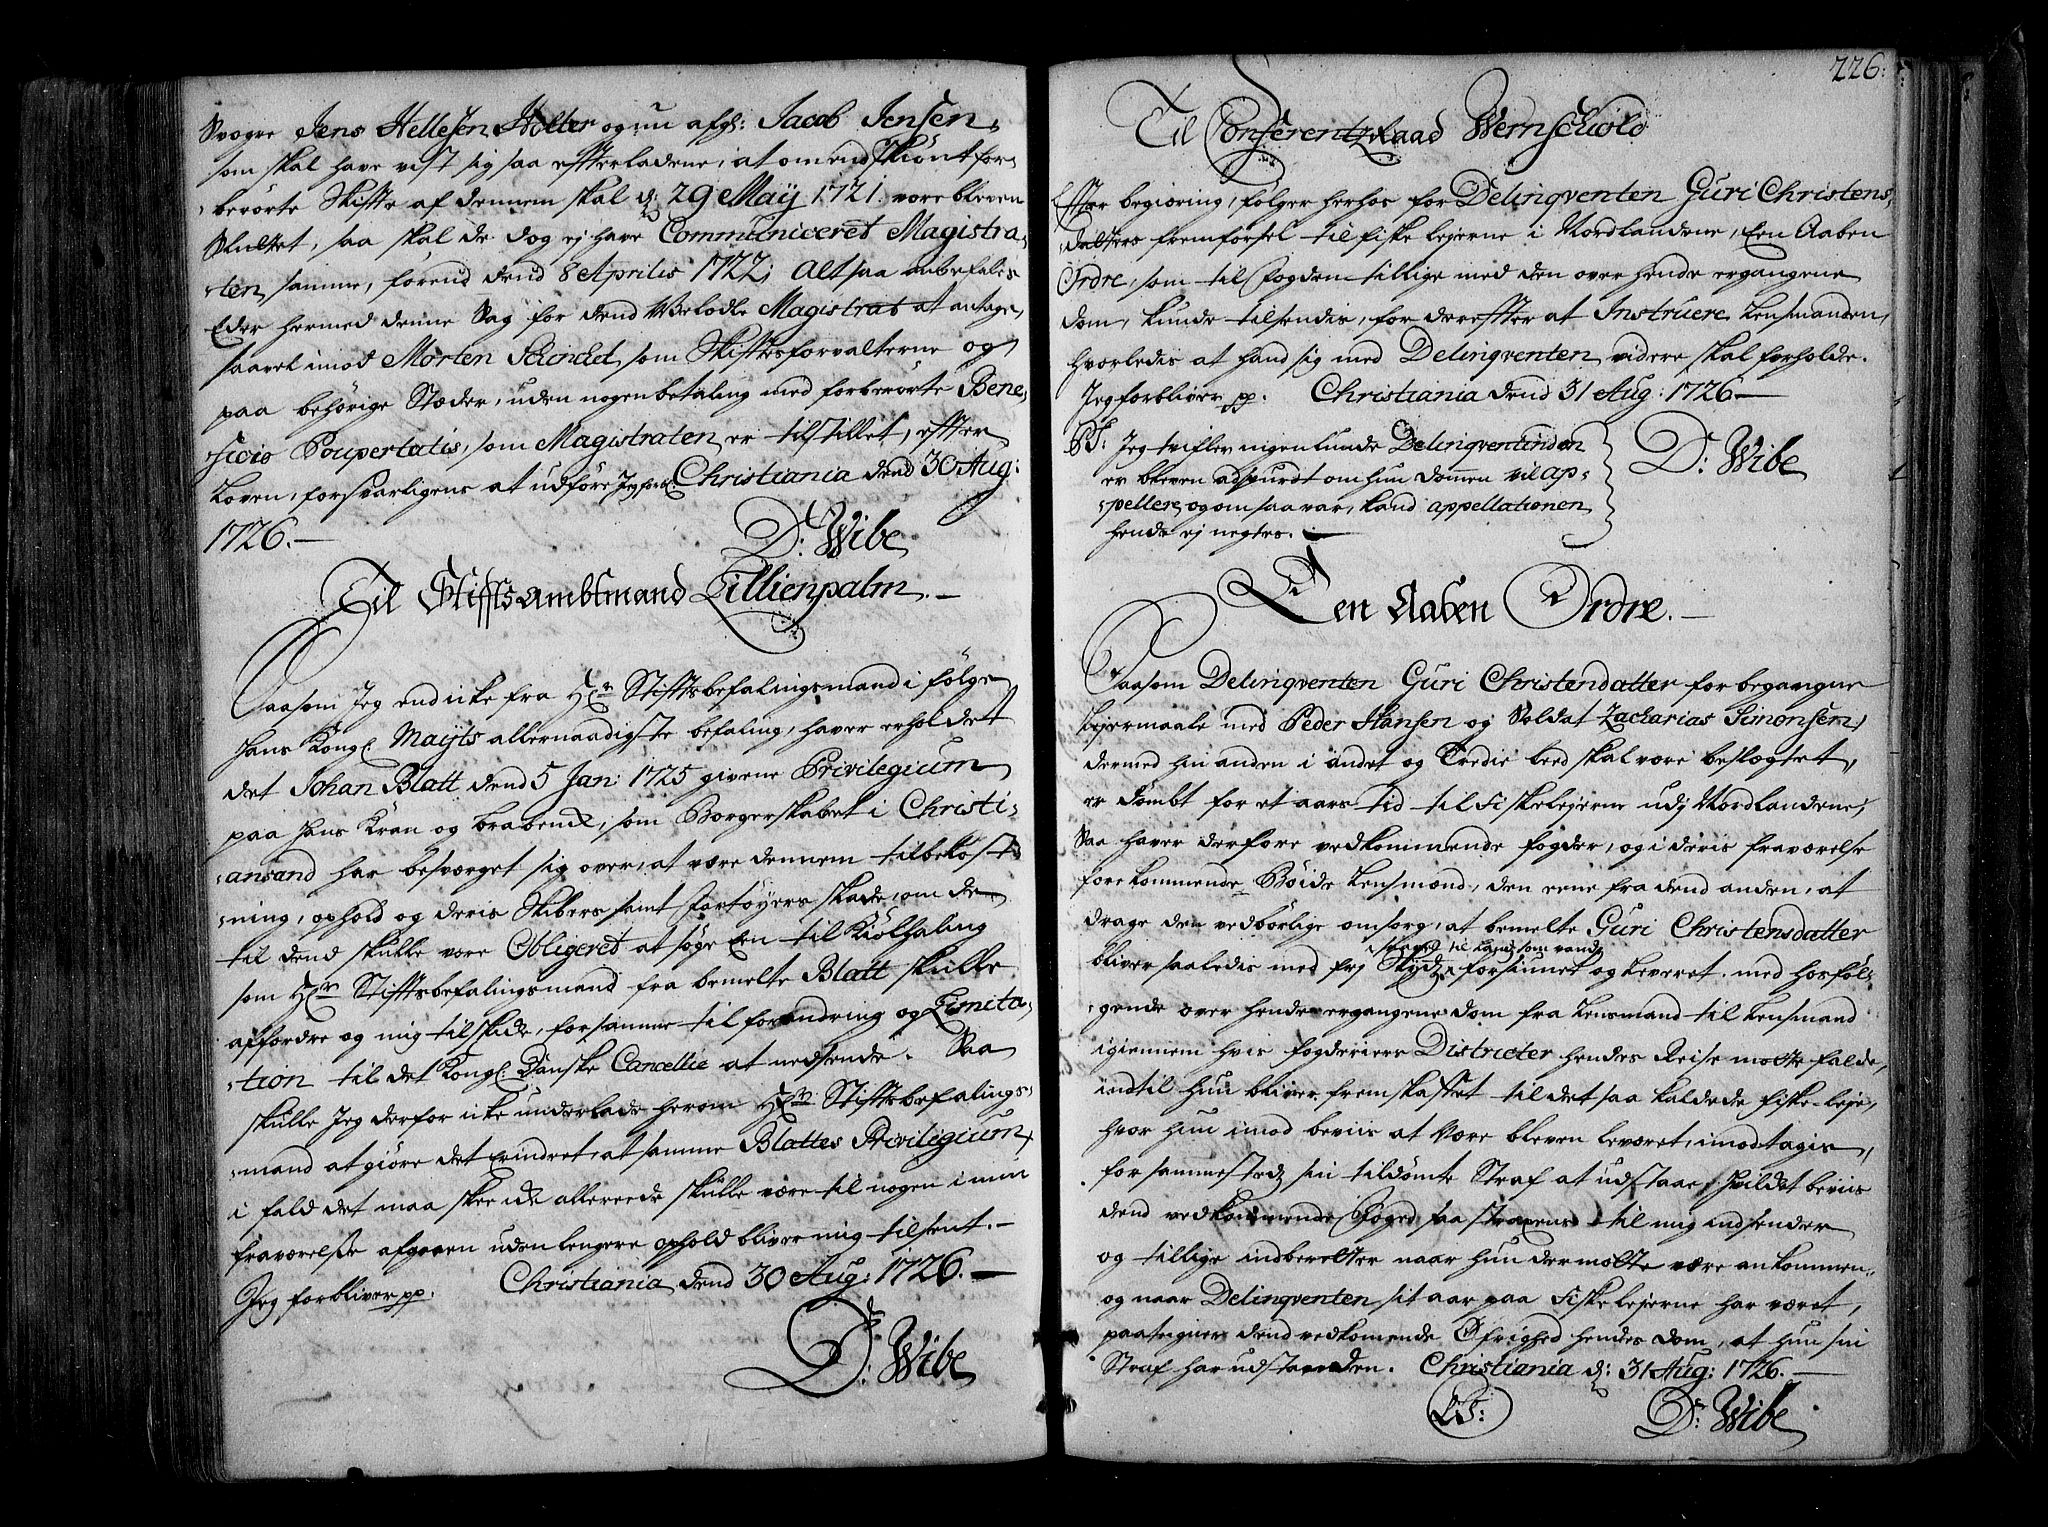 Svogre Jens Hellesen Holter og nu afg: Jacob Jensen,
som skal have vist sig saa effterladene, at omendskiønt for-
berørte Skiffte af dennem skal d: 29 Maÿ 1721. være bleven
Sluttet, saa skal de dog ej have Communiceret Magistra-
ten, samme, førend dend 8 Aprilis 1722; Altsaa anbefales
Eder hermed denne Sag for dend Velædle Magistrat at antage,
saavel imod Morten Schondel, som Skifftesforvalterne og
paa behørige Stæder, uden nogen betaling med forberørte Bene-
ficio Paupertatis, som Magistraten er tilstillet, effter
Loven, forsvarligens at udføre Jeg forbl: Christiania dend 30 Aug:
1726.
D: Wibe
Til Stiffts Ambtmand Lillienpalm.
Saasom Jeg end icke fra Hr: Stifftsbefalingsmand i følge
Hans Kongl: Maÿts allernaadigste befaling, haver erholdet
det Johan Blatt dend 5 Jan: 1725 givene Privilegium
paa Hans Kran og brabenck, som Borgerskabet i Christi-
ansand har besværget sig over, at være dennem til bekost-
ning, ophold og deris Skibers samt fortøyers skade, om de
til dend skulle være Obligeret at søge Een til Kiølhaling
som Hr: Stifftsbefalingsmand fra bemelte Blatt skulle
affordre og mig tilskicke, for samme til forandring og Limita-
tion til det Kongl: Danske Cancellie at nedsende. Saa
skulle Jeg derfor icke underlade herom Hr: Stifftsbefalings-
mand at giøre det Erindret, at samme Blattes Privilegium,
i fald det maa skee icke allereede skulle være til nogen i min
fraværelse afgiven uden lengere ophold bliver mig tilsent.
Jeg forbliver pp. Christiania, dend 30 Aug: 1726.
D: Wibe
226:
Til Conferentz Raad Wernschiold
Effter begiering, følger herhos for Delinqventen Guri Christens-
datters fremførsel til fiske lejerne i Nordlandene, Een Aaben
Ordre, som til Fogden tillige med den over hende ergangene
dom, kunde tilsendis, for dereffter at Instruere Lensmanden,
hvorledis at hand sig med Delinqventen videre skal forholde.
Jeg forbliver pp. Christiania dend 31 Aug: 1726
PS: Jeg tvifler nigenlunde Delinqventinden
er bleven adspurdt om hun dommen vil ap-
pellere, og om saa var, kand appellationen
hende ej negtes.
D: Wibe
Een Aaben Ordre.
Saasom Delinqventen Guri Christendatter for begangne
Lejermaale med Peder Hansen og Soldat Zacharias Simonsen,
der med hin anden i andet og Tredie leed skal være beslægtet,
er dømbt for et aars tid til Fiskelejerne udj Nordlandene;
Saa haver derfore vedkommende fogder, og i deris fraværelse
forekommende Bøide Lensmænd, den eene fra dend anden, at
drage den vedbørlige omsorg, at bemelte Guri Christensdatter
i fængsel til Lands som vands
bliver saaledis med frj Skydz forsiunet og leveret med hosføl-
gende over hende ergangene dom fra Lensmand til Lensmand
igiennem hvis fogderiers Districter hendes Reise motte falde,
indtil hun bliver fremskaffet til det saa kaldede fiske-leje,
hvor hun imod beviis at være bleven leveret, imodtagis,
for sammestedz sin tildømte Straf at udstaae, hvilket beviis
dend vedkommende Foged faa straxens til mig indsender
og tillige indberetter naar hun der motte være ankommen
og naar Delinqventen sit aar paa Fiskelejerne har været,
paategner dend vedkommende Øfrighed hendes dom, at hun sin
Straf har udstaanden. Christiania d: 31 Aug: 1726.
LS:
D: Wibe